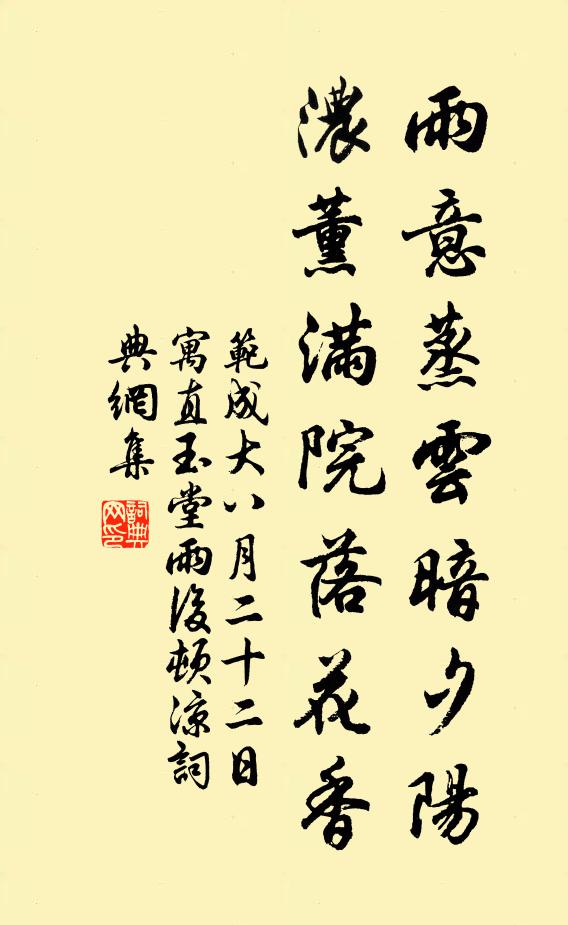 雨意蒸雲暗夕陽
濃薰滿院落花香
範成大八月二十二日
寓直玉堂雨後頓涼詞
典網集
詞典網印